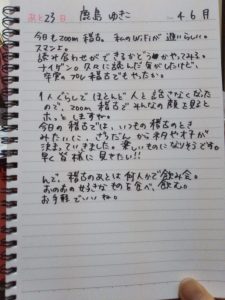 あと23日 鹿島ゆきこ 4 6月
今日もzoom稽古。私のWiFiが遅いらしい。
スマンよ。
読み合わせができるかどうかやってみる。
久々に読んだ気がしたけど、
プレ稽古でもやったか。
1人ぐらしでほとんど人と話さなくなった
ので、zoom稽古でみんなの顔を見ると
ホッとしますね。
今日の稽古では、いつもの稽古のとき
みたいに、そうだんしながらネタや様子が
決まっていきました。楽しいものになりそうです。
早く皆様に見せたい!!
んで、稽古のあとは何人かで飲み会。
おのおの好きなものを食べ、飲む。
お手軽でいいね。